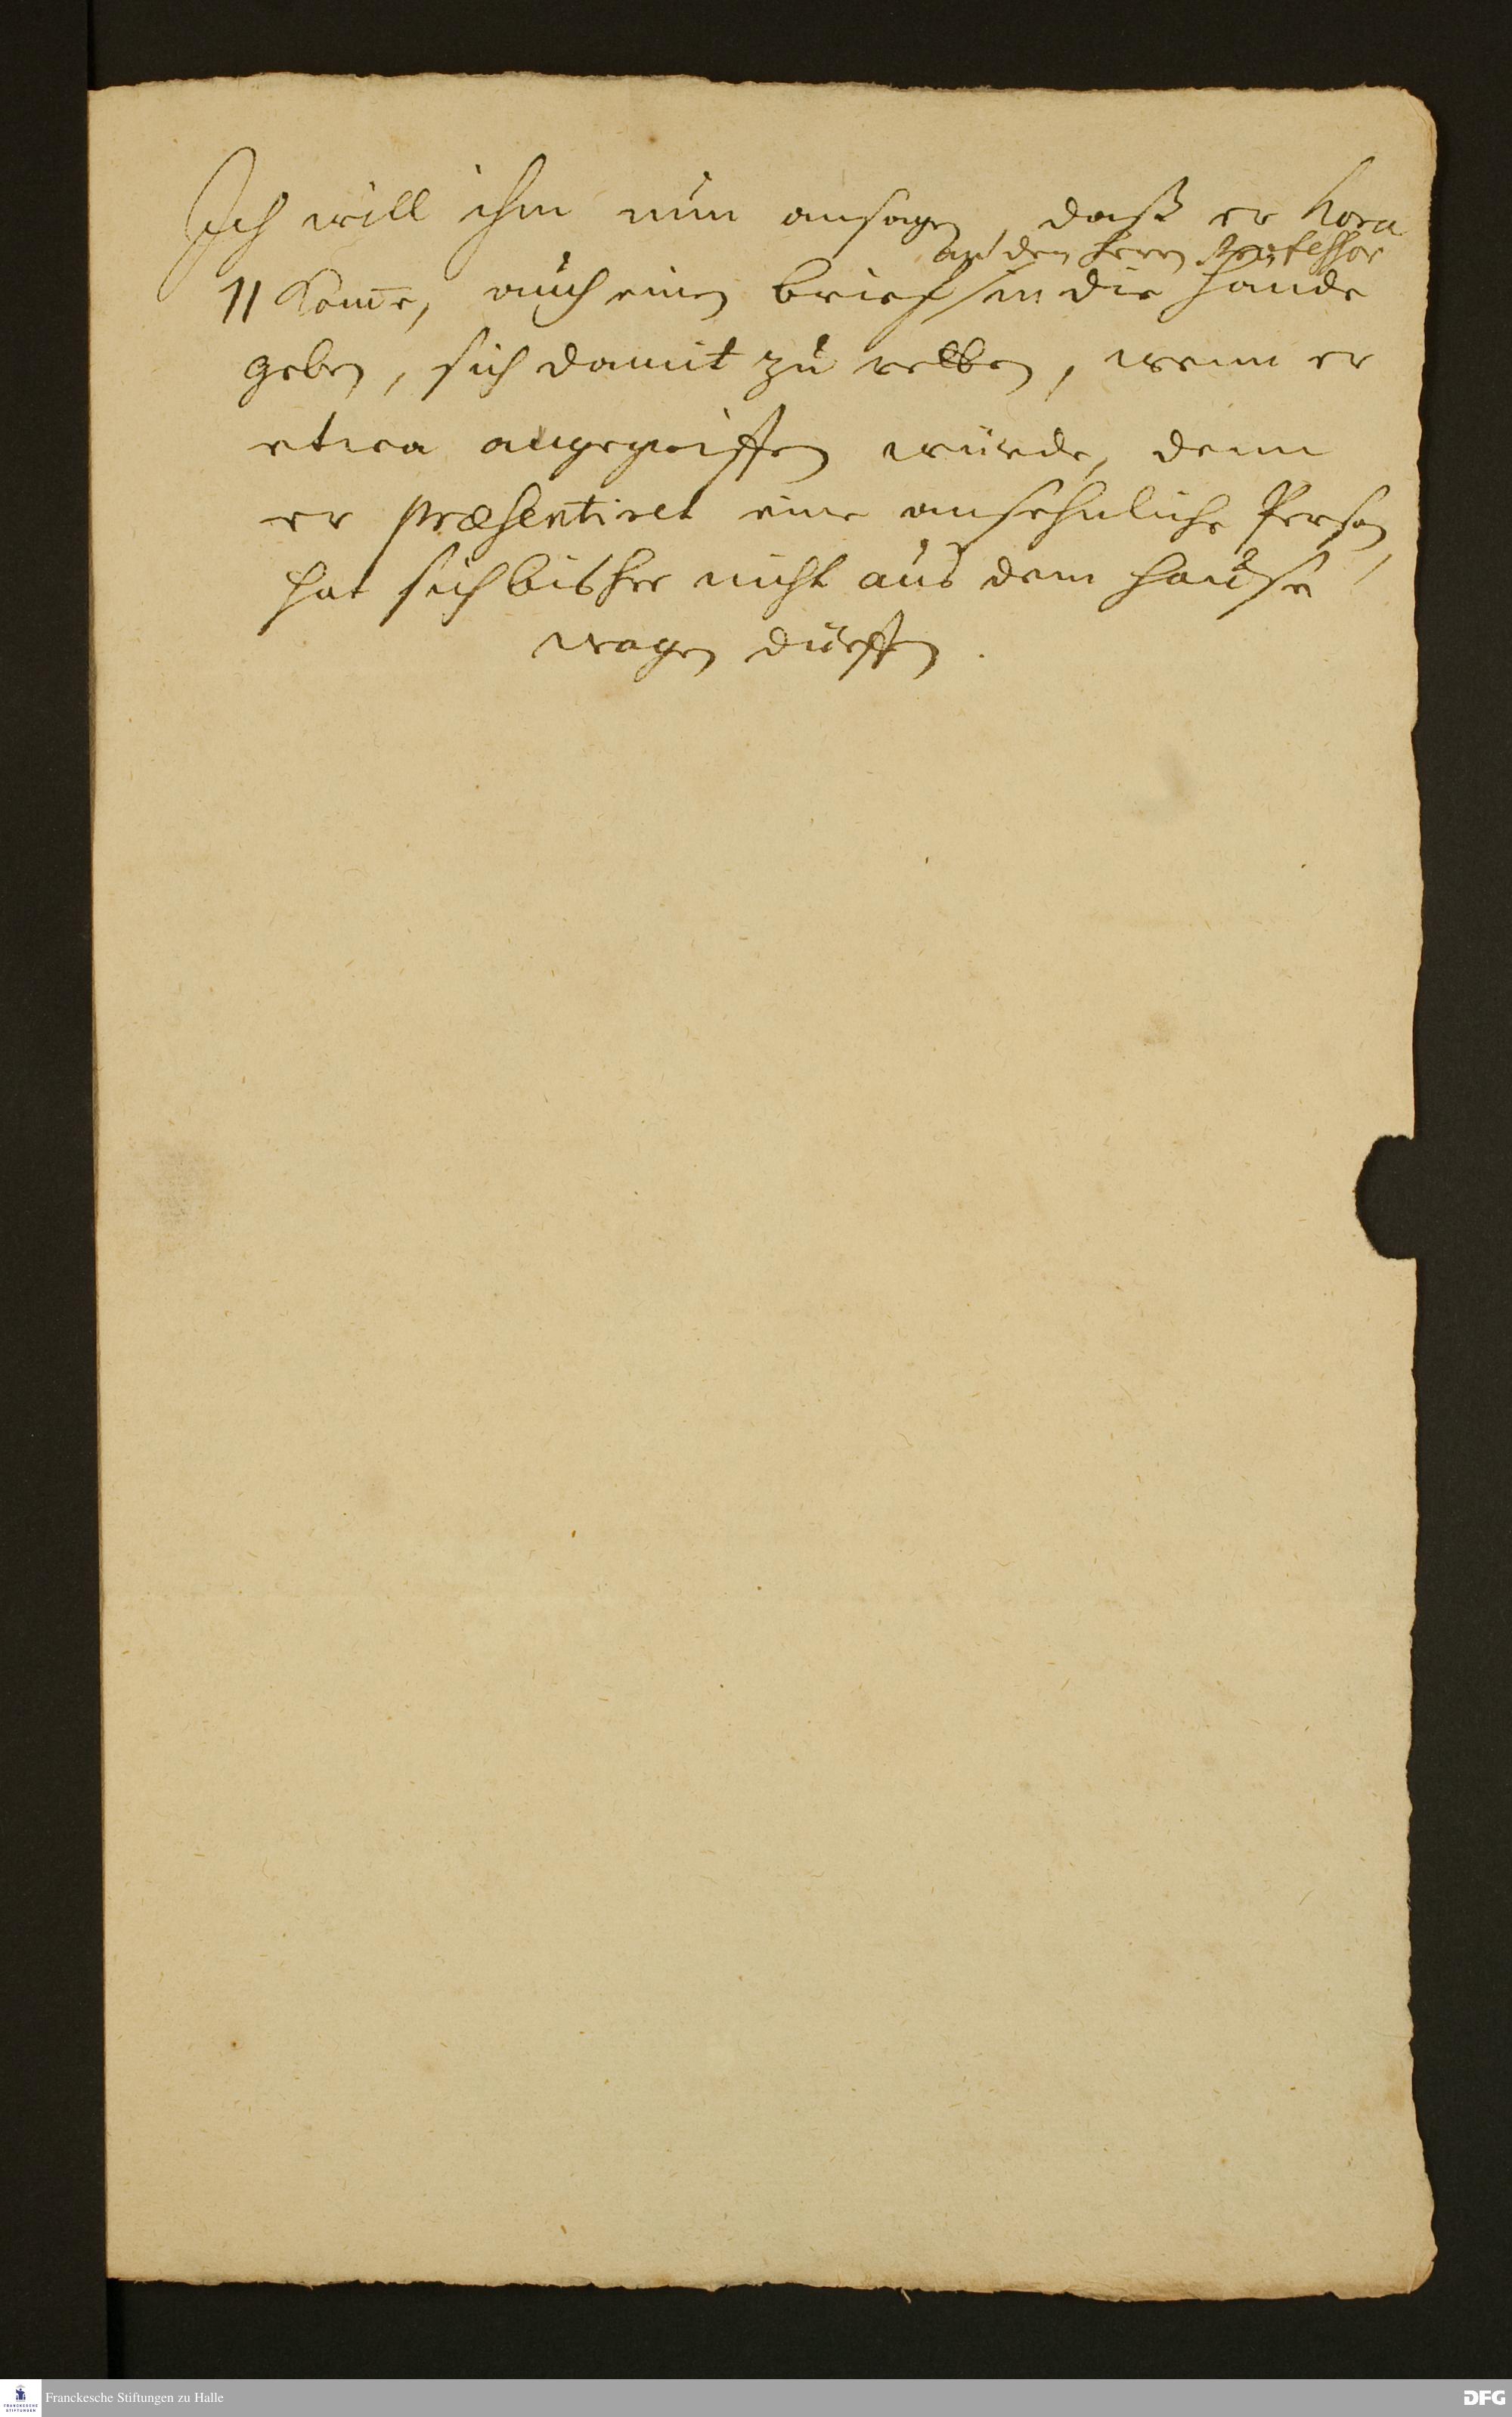 Ich will ihm nun ansagen, daß er hora
an den Herrn Professor
11 kom̄e, auch einen brief in die Hände
geben, sich damit zu retten, wenn er
etwa angegriffen würde, denn
er præsentiret eine ansehnliche Person,
hat sich bisher nicht aus dem Hause
wagen dürffen.
Franckesche Stiftungen zu Halle
FRANCKESCHE STIFTUNGEN
DFG